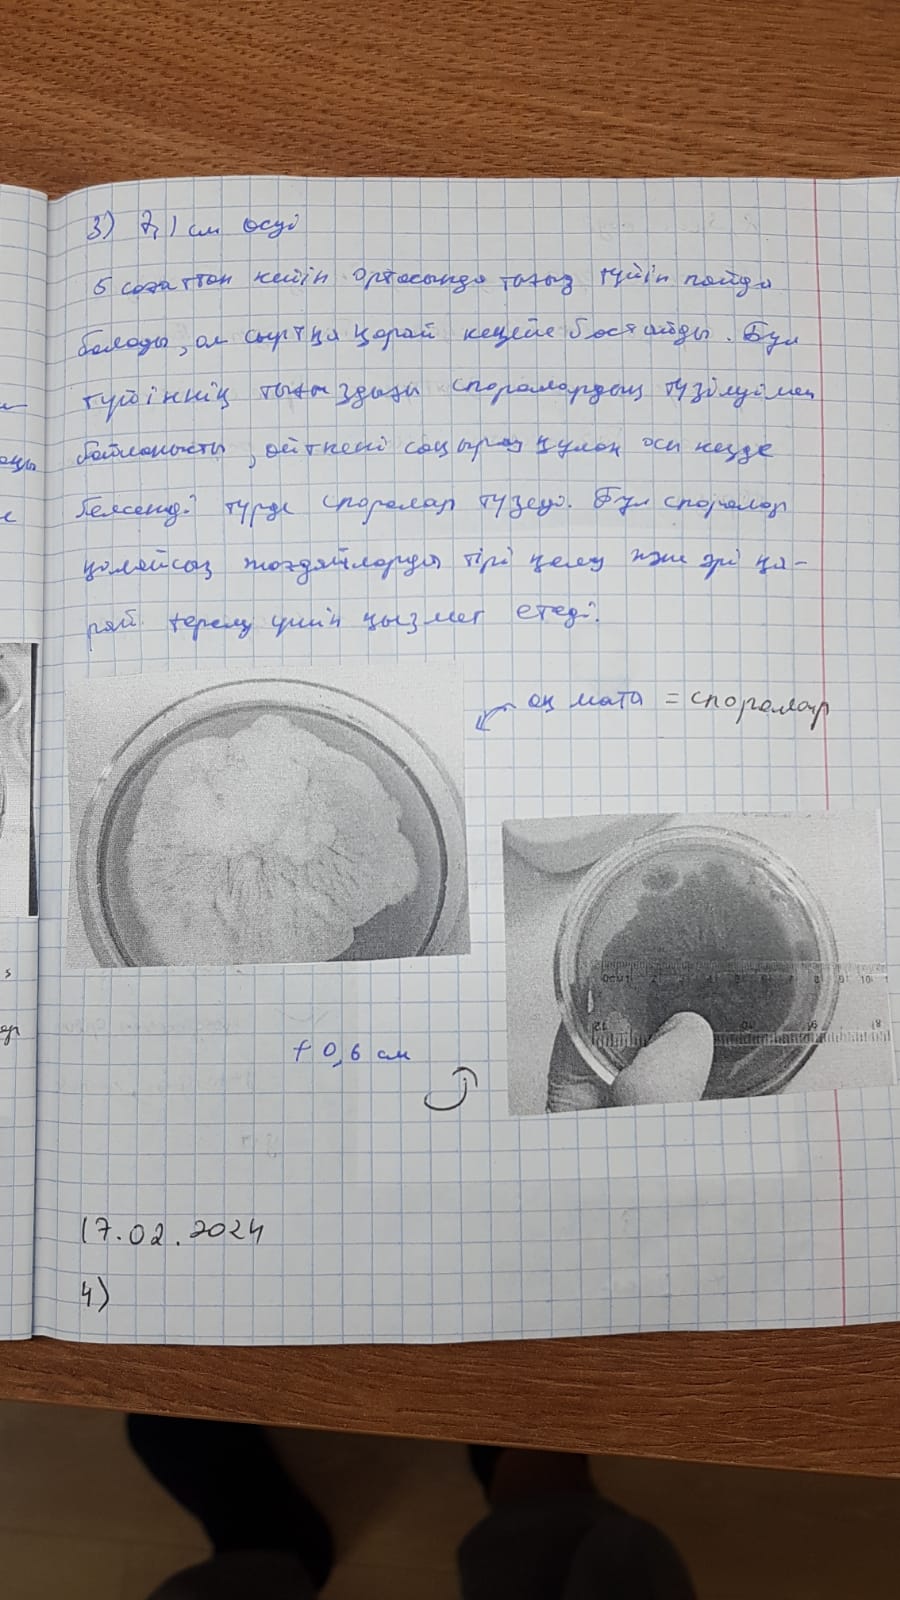 3) 7,1 см өсуі
5 сағаттан кейін ортасында тығыз түйін пайда
болады, ол сыртқа қарай кеңейе бастайды. Бұл
түйіннің тығыздығы споралардың түзілуімен
байланысты, өйткені саңырауқұлақ осы кезде
белсенді түрде споралар түзеді. Бұл споралар
қолайсыз жағдайларда тірі қалу және әрі қа-
рай таралу үшін қызмет етеді.
ақ мата = споралар
+ 0,6 см
17.02.2024
4)